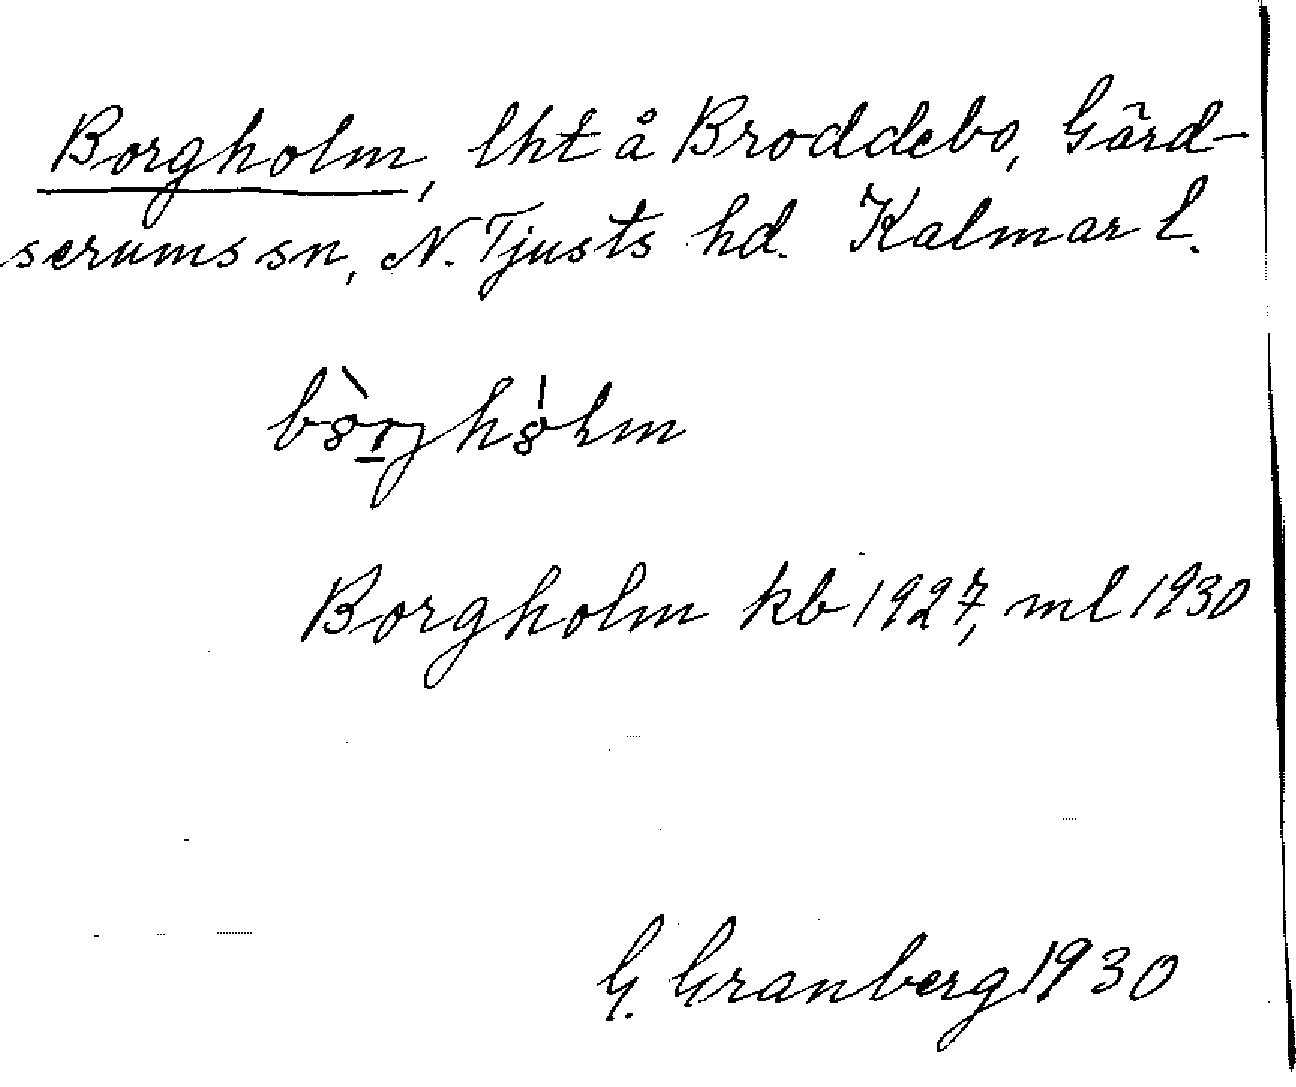 Borgholm, lht å Broddebo, Gärd-
serums sn, N. Tjusts hd. Kalmar l.
Borgholm kb 1927, ml 1930
G. Granberg 1930